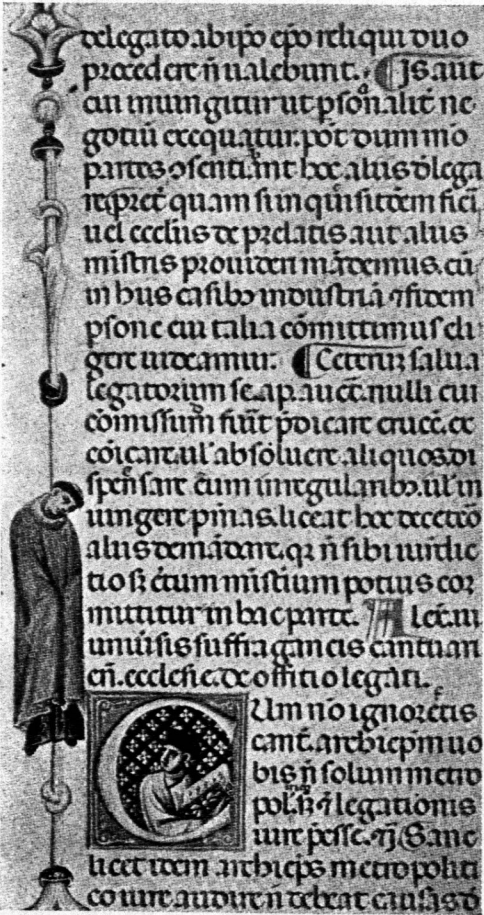 delegato ab ip̄o ep̄o reliqui duo
procedere n̄ ualebunt. ¶ Is aut̄
cui iniungitur ut ꝑsonalit̄ ne
gotiū exequatur. pōt dum mō
partes ↄsentiant hoc aliis dlega
re. pret̄ quam si inquisitōem fieri
uel eccliis de prelatis aut aliis
mīstris prouideri mādemus. cū
in hiis casibꝫ industriā ⁊ fidem
ꝑsone cui talia cōmittimus eli
gere uideamur. ¶ Ceterū salua
legatorum se. ap. auct. nulli cui
cōmissum fuīt p̄dicare crucē. ex
cōicare. ul' absoluere aliquos. di
spēnsare cum irregularibꝫ. ul' in
iungere pīnas. liceat hoc decetō
aliis demādare. qꝛ n̄ sibi iuridic
tio sꝫ c̄tum mīstium potius cō
mittitur in hac parte. Alex. iii
uniūsis suffraganeis cantuari
en̄. ecclesie. De offitio legati.
Cum nō ignoretis
cant. archiep̄m uo
bis n̄ solum metro
pol. sꝫ ⁊ legationis
iure p̄esse. ⁊ j̄ Sane
licet idem archiep̄s metropoliti
co iure audire n̄ debeat causas d